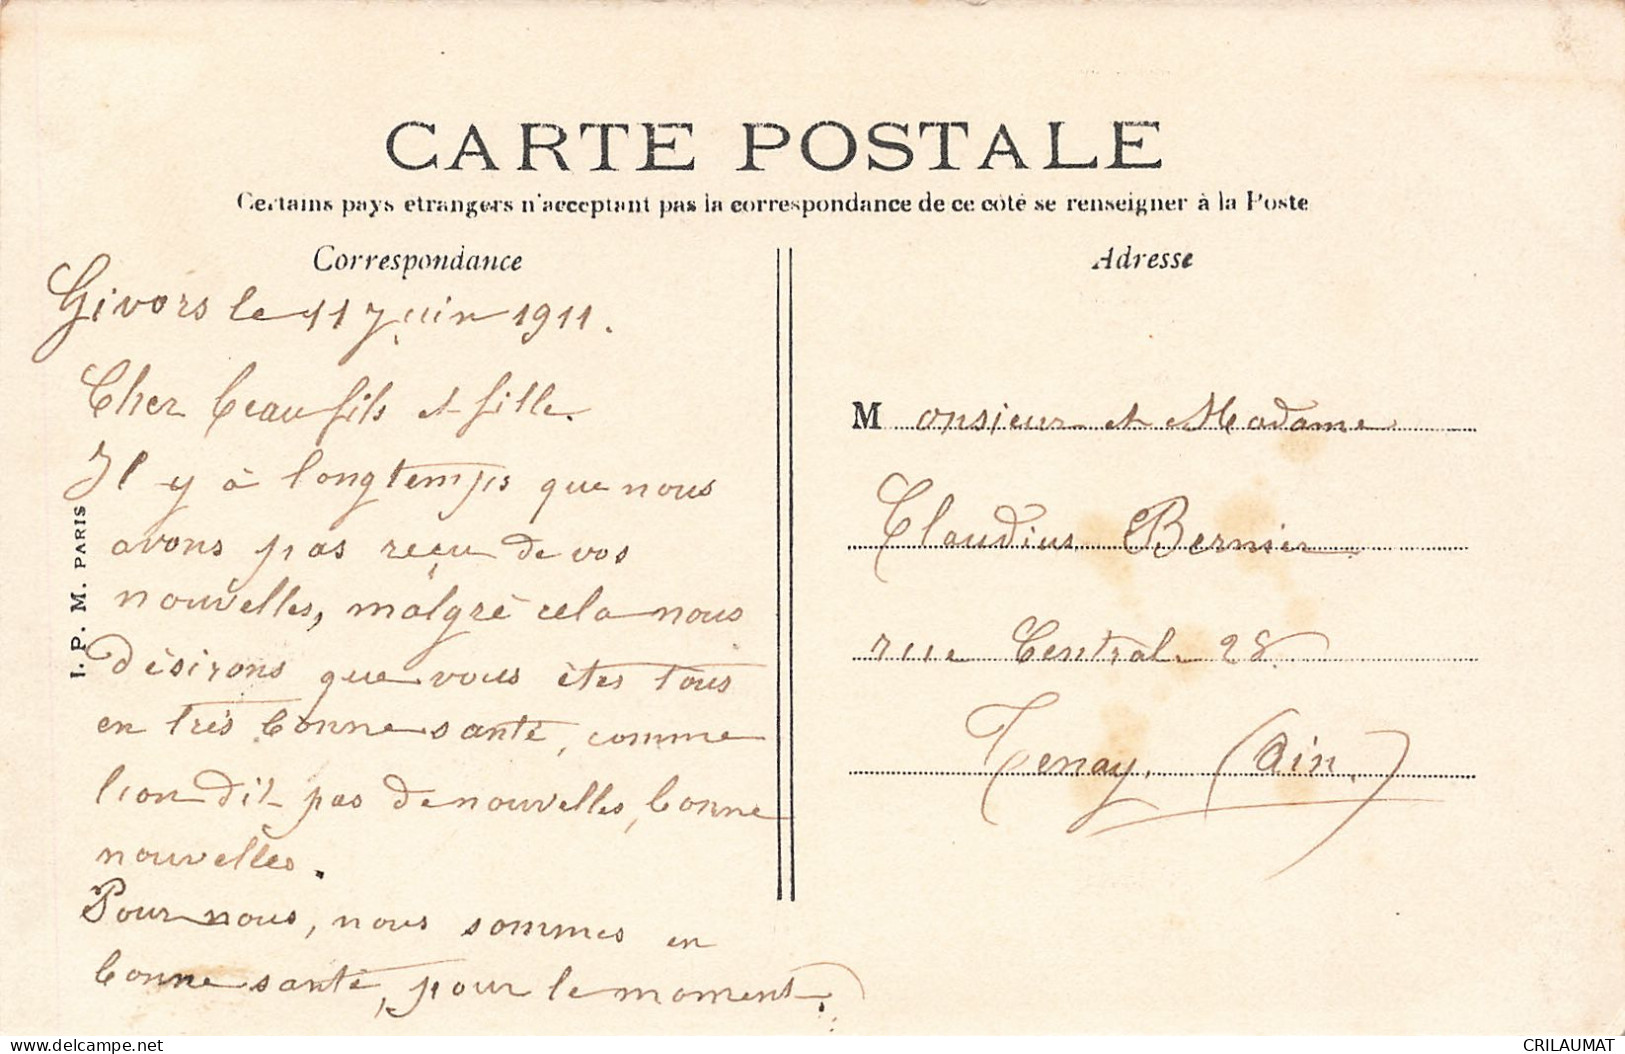 CARTE POSTALE
Certains pays etrangers n'acceptent pas la correspondance de ce côté se renseigner à la Poste
Correspondance
Givors le 11 Juin 1911.
Cher beau fils et fille.
Il y à longtemps que nous
avons pas reçu de vos
nouvelles, malgré cela nous
désirons que vous êtes tous
en très bonne santé, comme
l'on dit pas de nouvelles, bonne
nouvelles.
Pour nous, nous sommes en
bonne santé, pour le moment.
I. P. M. PARIS
Adresse
Monsieur et Madame
Claudius Bernier
rue Central 28
Tenay. (Ain.)
delcampe.net
CRILAUMAT